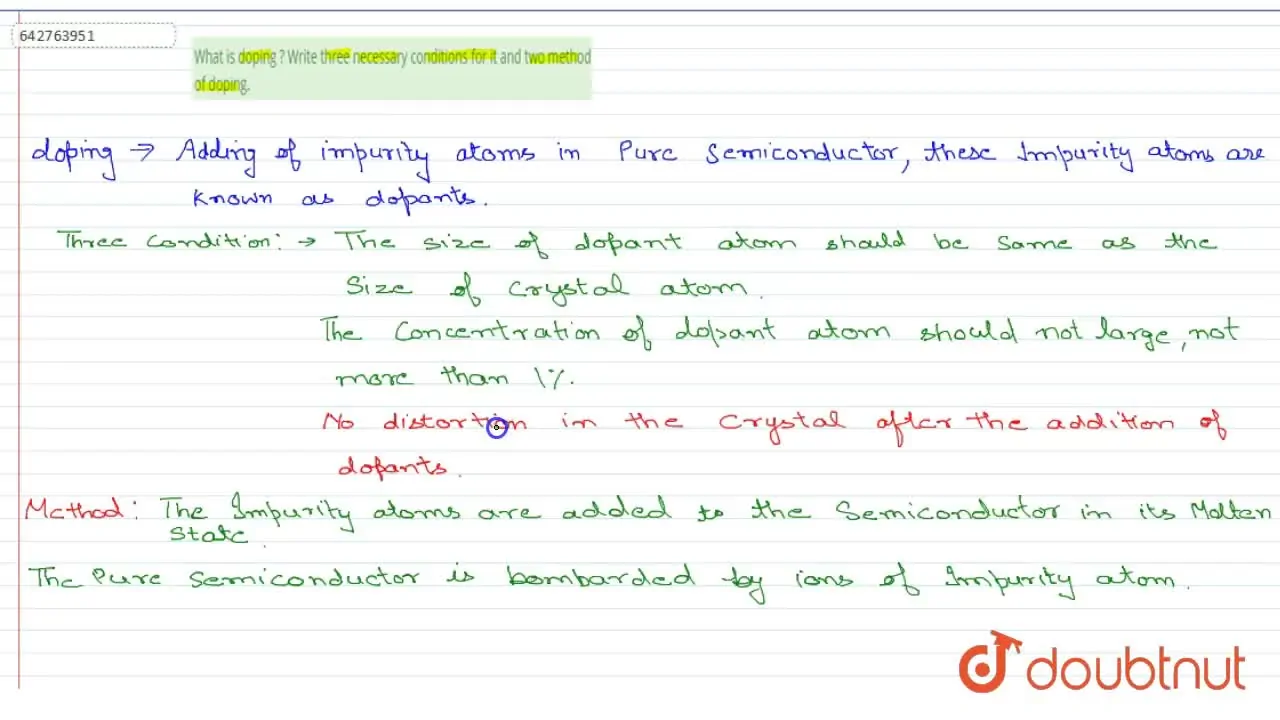 642763951
What is doping ? Write three necessary conditions for it and two method
of doping.
doping → Adding of impurity atoms in Pure Semiconductor, these Impurity atoms are
known as dopants.
Three Condition: → The size of dopant atom should be same as the
Size of crystal atom.
The Concentration of dopant atom should not large, not
more than 1%.
No distortion in the crystal after the addition of
dopants.
Method: The Impurity atoms are added to the Semiconductor in its Molten
State.
The Pure semiconductor is bombarded by ions of Impurity atom.
doubtnut